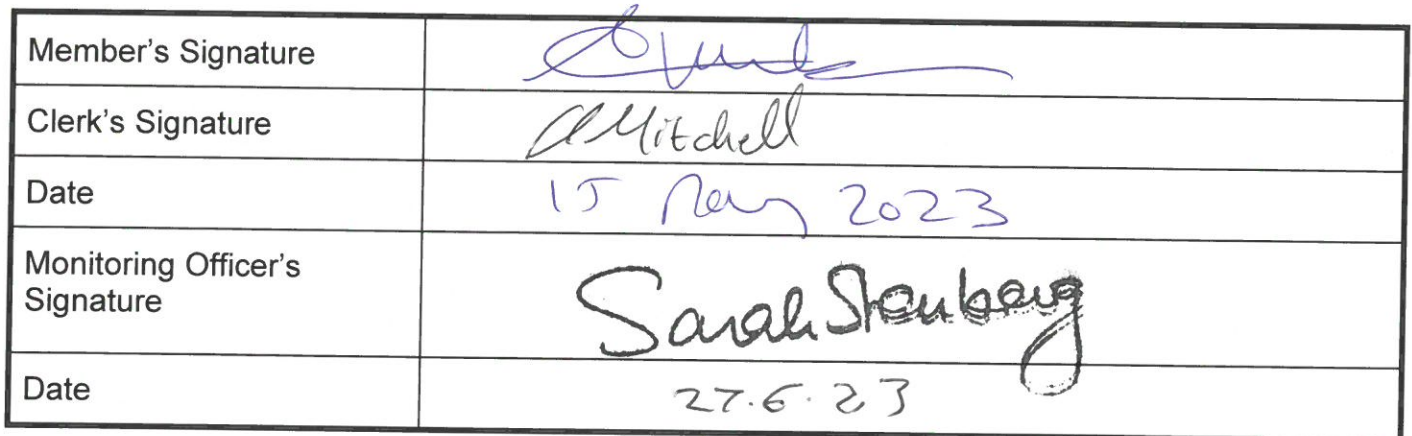 Member's Signature
Clerk's Signature
Mitchell
Date
15 May 2023
Monitoring Officer's
Signature
Sarah Stenberg
Date
27.6.23